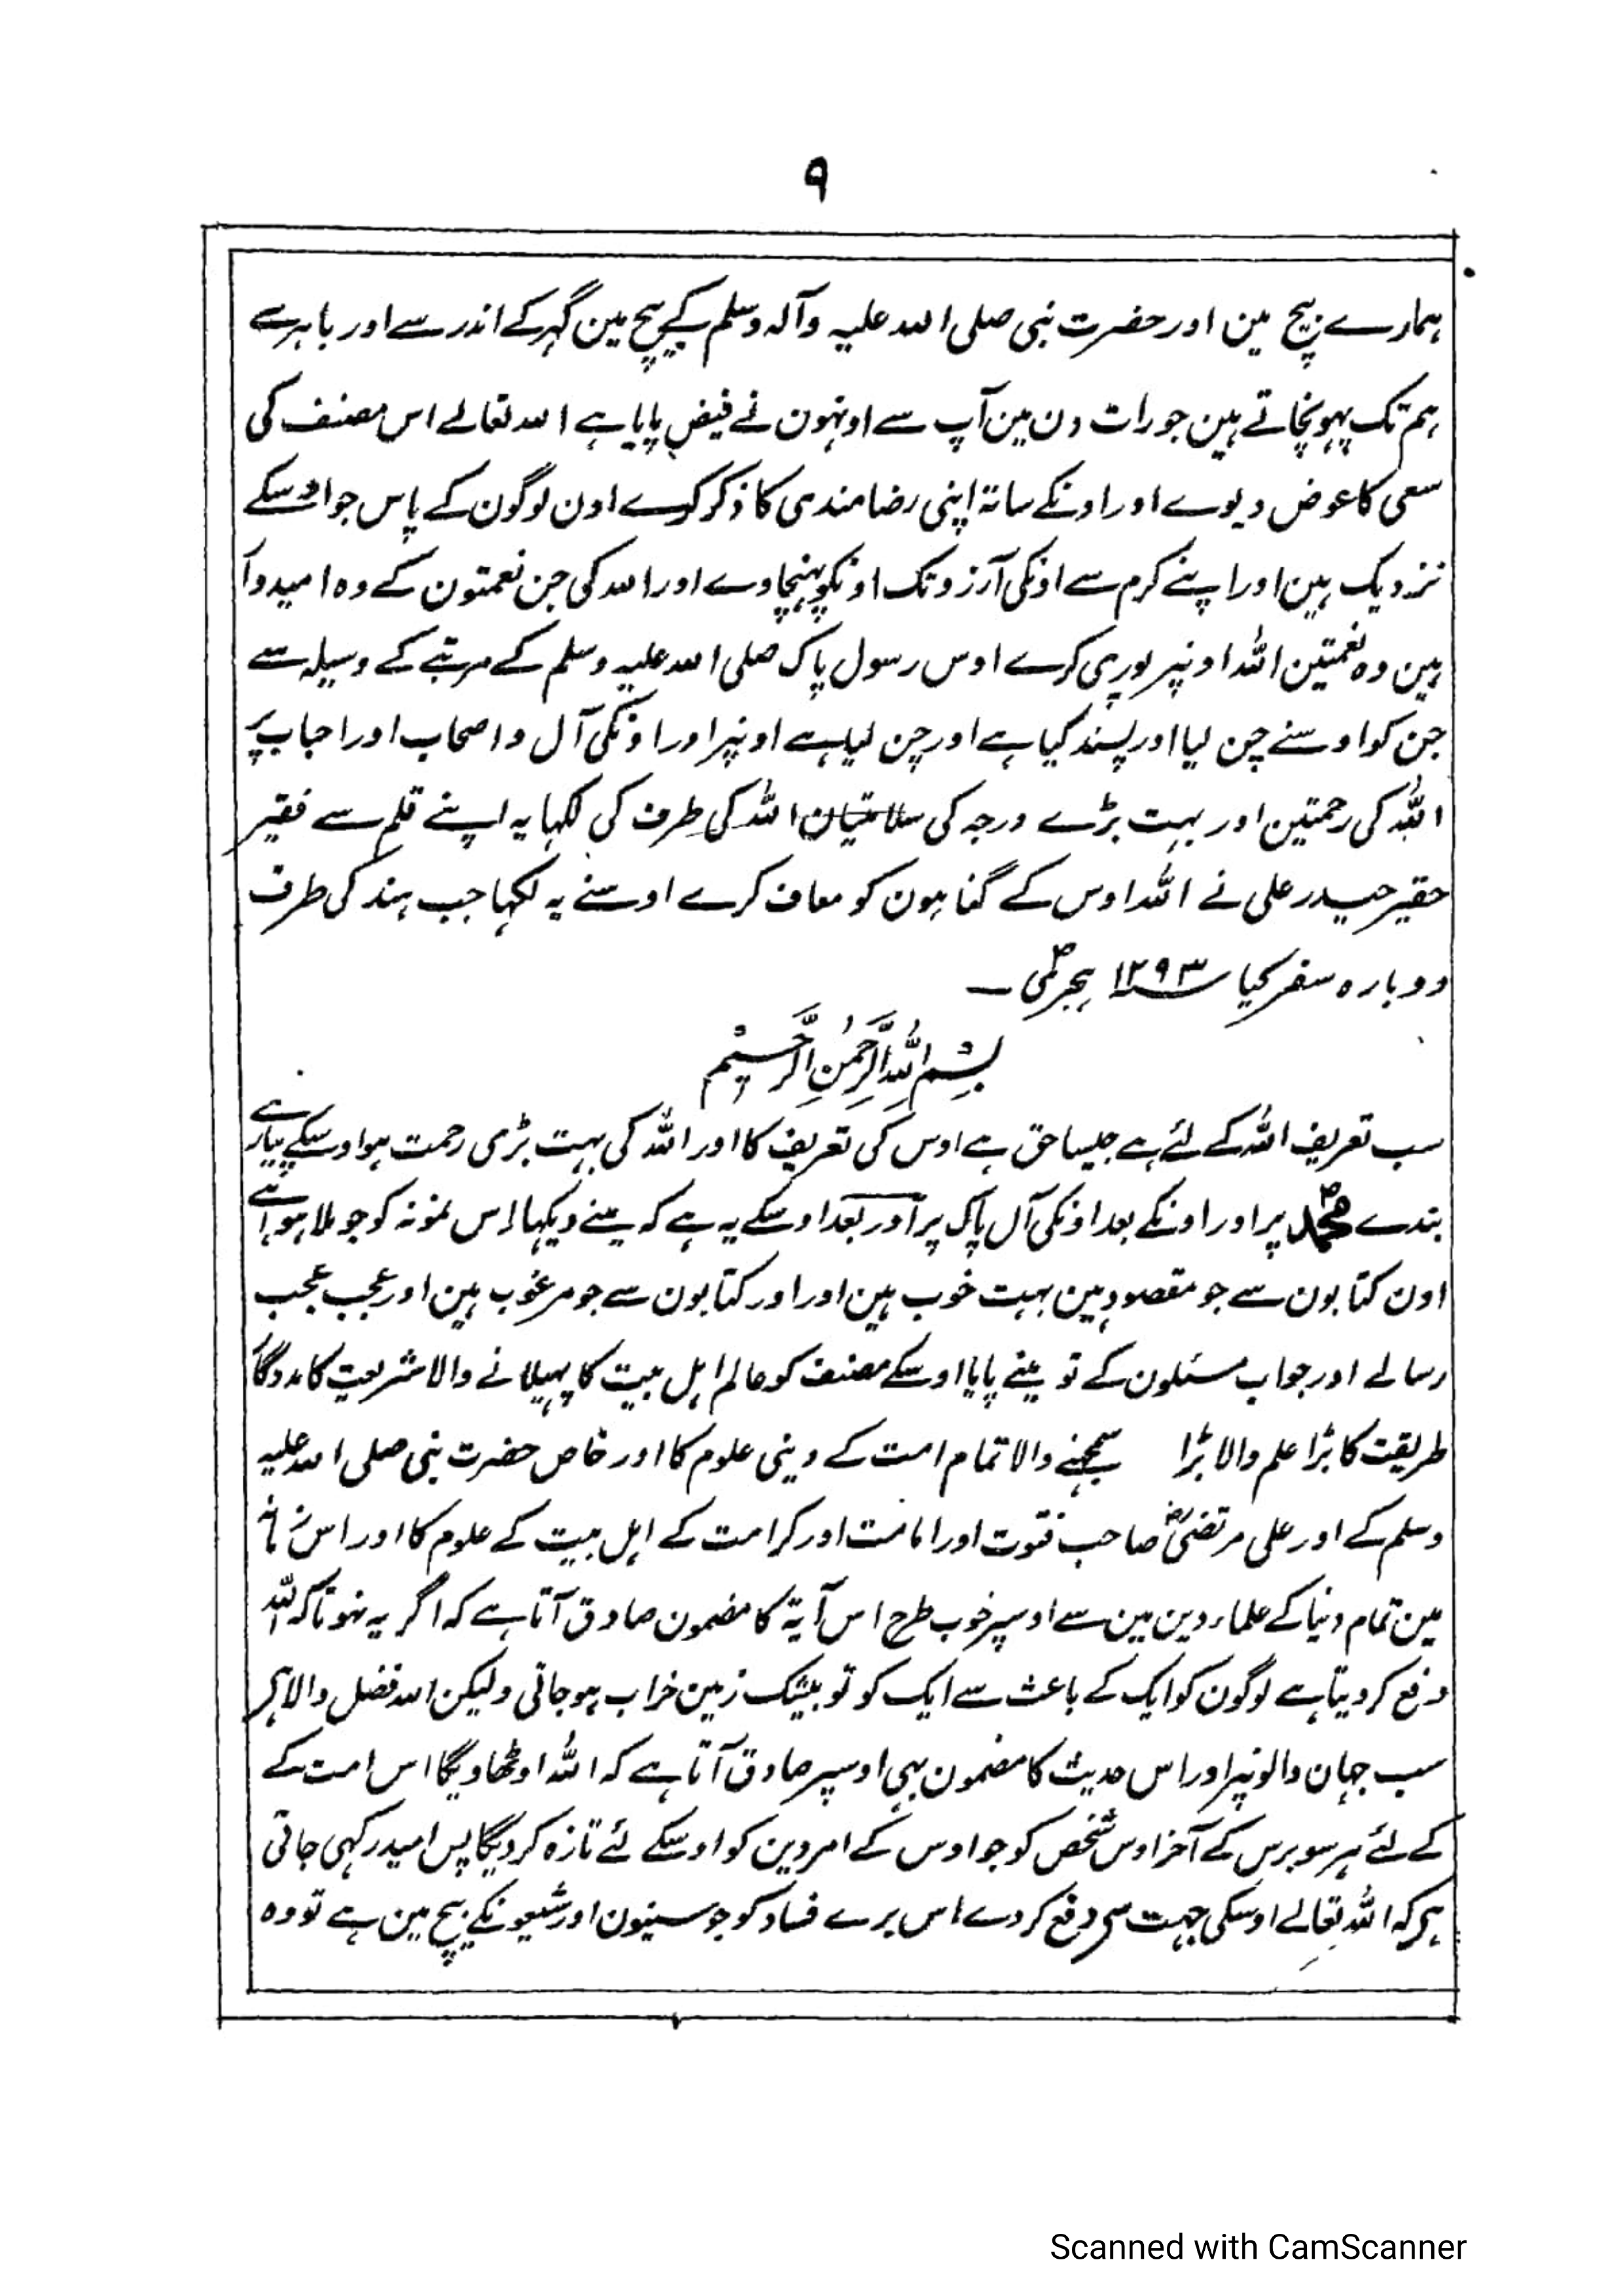 ۹
ہمارے بیچ مین اور حضرت نبی صلی اللہ علیہ وآلہ وسلم کے بیچ مین گہر کے اندر سے اور باہر سے
ہم تک پہونچاتے ہین جو رات دن مین آپ سے اونہون نے فیض پایا ہے اللہ تعالے اس مصنف کی
سعی کا عوض دیوے اور اونکے ساتہ اپنی رضامندی کا ذکر کرے اون لوگون کے پاس جو اوسکے
نزدیک ہین اور اپنے کرم سے اونکی آرزو تک اونکو پہنچاوے اور اللہ کی جن نعمتون کے وہ امیدوار
ہین وہ نعمتین اللہ اونپر پوری کرے اوس رسول پاک صلی اللہ علیہ وسلم کے مرتبے کے وسیلہ سے
جن کو اوسنے چن لیا اور پسند کیا ہے اور چن لیا ہے اونپر اور اونکی آل و اصحاب اور احباب پر
اللہ کی رحمتین اور بہت بڑے درجہ کی سلامتیان اللہ کی طرف کی لکہا یہ اپنے قلم سے فقیر
حقیر حیدر علی نے اللہ اوس کے گناہون کو معاف کرے اوسنے یہ لکہا جب ہند کی طرف
دوبارہ سفر کیا ۱۲۹۳ ہجری ـ
بِسْمِ اللهِ الرَّحْمٰنِ الرَّحِيْم
سب تعریف اللہ کے لئے ہے جیسا حق ہے اوس کی تعریف کا اور اللہ کی بہت بڑی رحمت ہو اوسکے پیارے
بندے محمد پر اور اونکے بعد اونکی آل پاک پر اور بعد اوسکے یہ ہے کہ مینے دیکہا اس نمونہ کو جو ملا ہوا ہے
اون کتابون سے جو مقصود ہین بہت خوب ہین اور اور کتابون سے جو مرغوب ہین اور عجب عجب
رسالے اور جواب مسئلون کے تو مینے پایا اوسکے مصنف کو عالم اہل بیت کا پہیلانے والا شریعت کا مددگار
طریقت کا بڑا علم والا بڑا سمجہنے والا تمام امت کے دینی علوم کا اور خاص حضرت نبی صلی اللہ علیہ
وسلم کے اور علی مرتضیٰ صاحب فتوت اور امامت اور کرامت کے اہل بیت کے علوم کا اور اس زمانے
مین تمام دنیا کے علماء دین مین سے اوسپر خوب طرح اس آیۃ کا مضمون صادق آتا ہے کہ اگر یہ نہوتا کہ اللہ
دفع کر دیتا ہے لوگون کو ایک کے باعث سے ایک کو تو بیشک زمین خراب ہو جاتی ولیکن اللہ فضل والا ہی
سب جہان والونپر اور اس حدیث کا مضمون بہی اوسپر صادق آتا ہے کہ اللہ اوٹھاویگا اس امت کے
کے لئے ہر سو برس کے آخر اوس شخص کو جو اوس کے امر دین کو اوسکے لئے تازہ کر دیگا پس امید رکہی جاتی
ہی کہ اللہ تعالے اوسکی جہت سی دفع کر دے اس برے فساد کو جو سنیون اور شیعونکے بیچ مین ہے تو وہ
Scanned with CamScanner